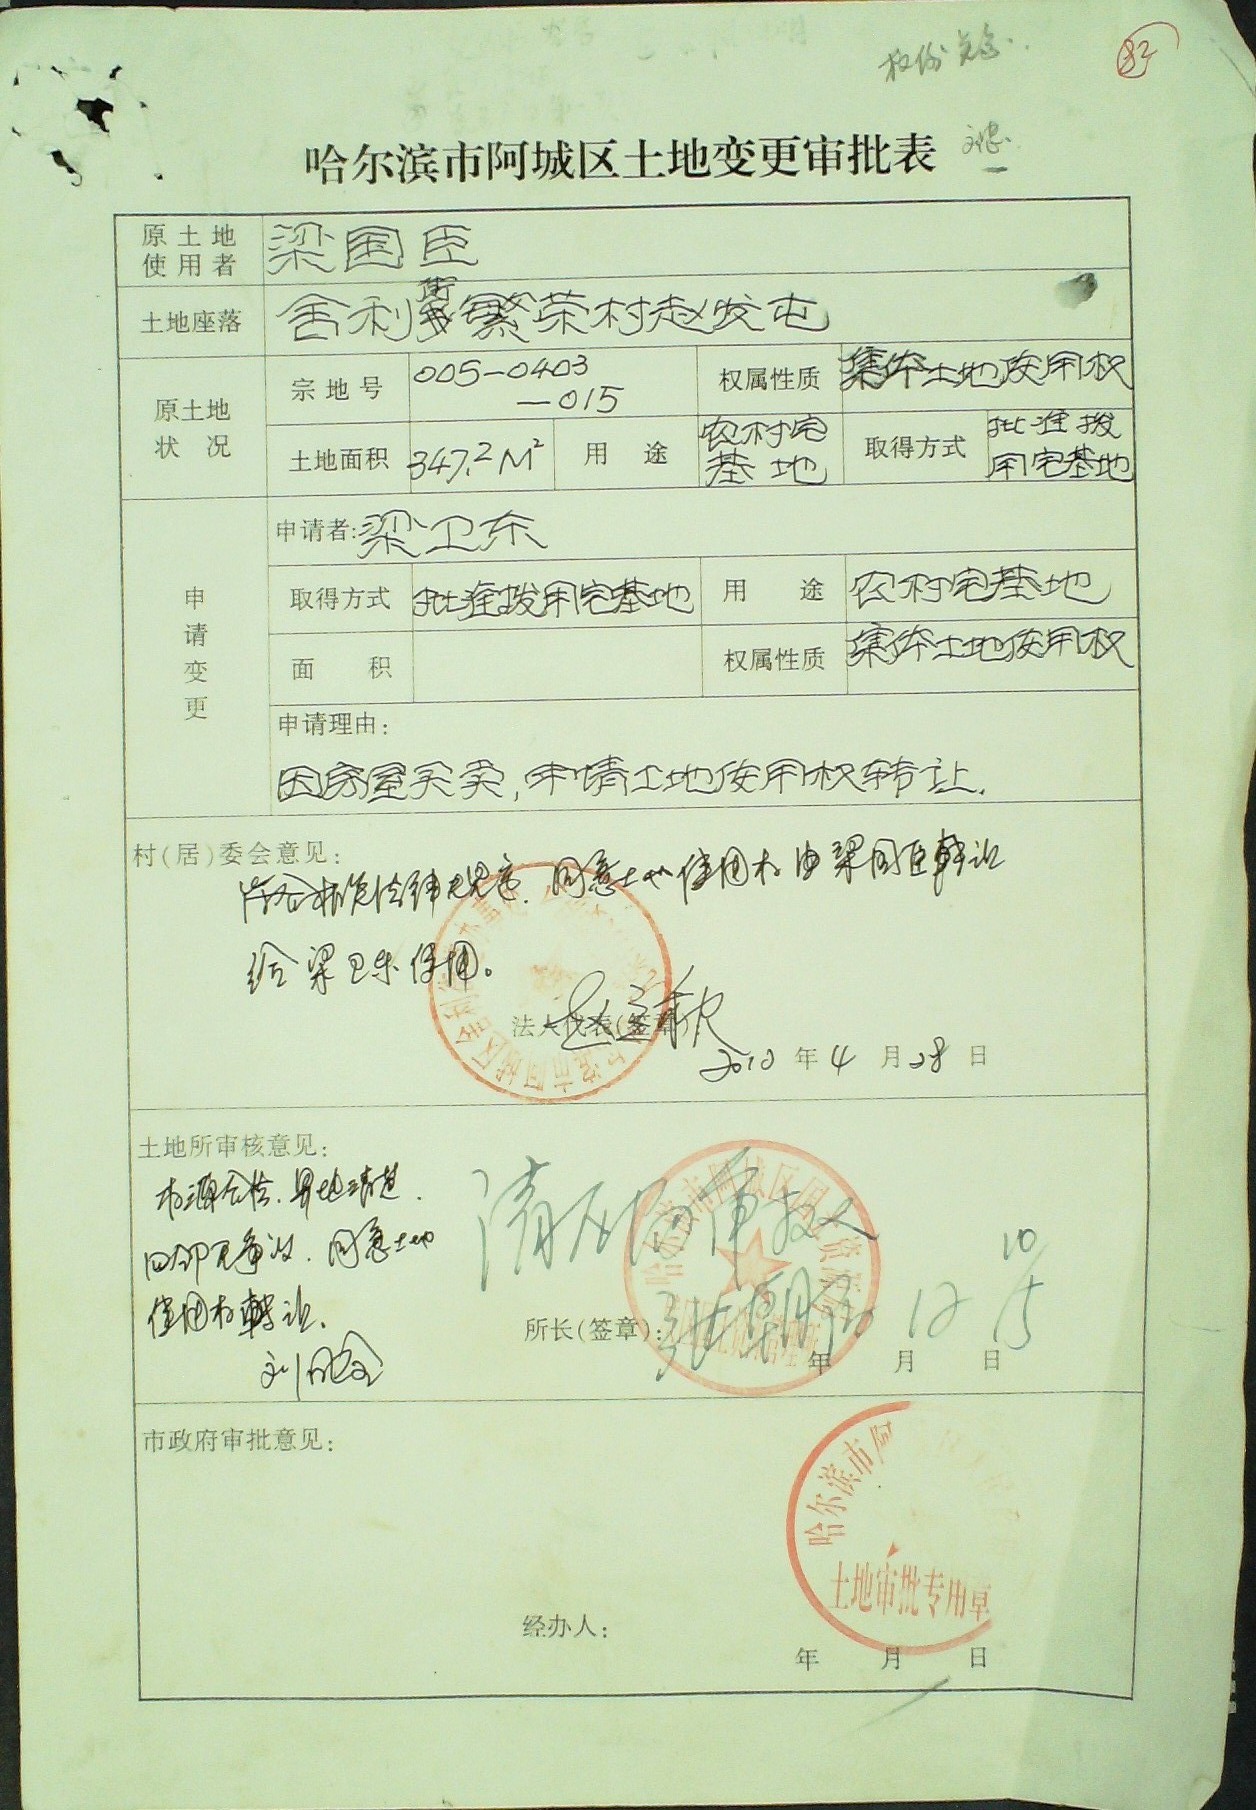 82
哈尔滨市阿城区土地变更审批表
原土地使用者 梁国臣
土地座落 舍利街繁荣村赵发屯
原土地状况
宗地号 005-0403-015 权属性质 集体土地使用权
土地面积 347.2M² 用途 农村宅基地 取得方式 批准拨用宅基地
申请变更
申请者:梁卫东
取得方式 批准拨用宅基地 用途 农村宅基地
面积 权属性质 集体土地使用权
申请理由:
因房屋买卖,申请土地使用权转让.
村(居)委会意见:
同意土地使用权由梁国臣转让
给梁卫东使用。
法人代表(签章)
2012年4月28日
土地所审核意见:
权源合法.界址清楚.
四邻无争议.同意土地
使用权转让.
所长(签章):
12 10/15
年 月 日
市政府审批意见:
哈尔滨市阿
土地审批专用章
经办人:
年 月 日